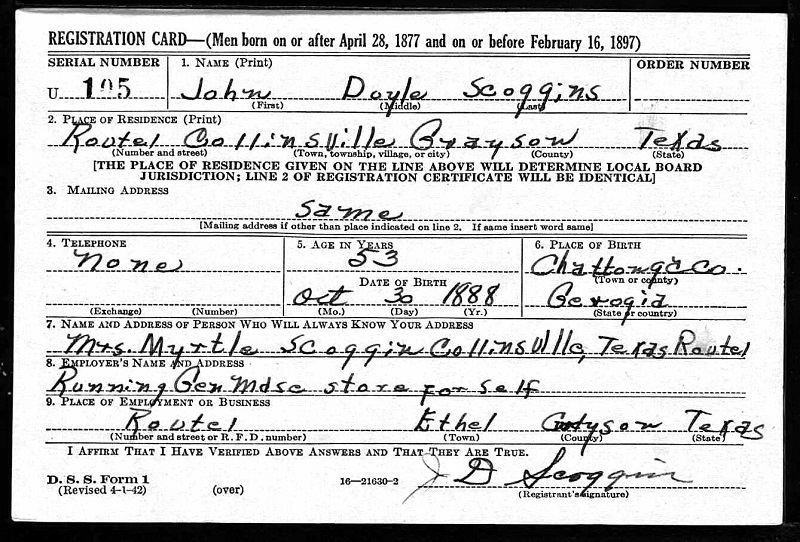 REGISTRATION CARD—(Men born on or after April 28, 1877 and on or before February 16, 1897)
SERIAL NUMBER 1. NAME (Print) ORDER NUMBER
U 105 John Doyle Scoggins
(First) (Middle) (Last)
2. PLACE OF RESIDENCE (Print)
Route1 Collinsville Grayson Texas
(Number and street) (Town, township, village, or city) (County) (State)
[THE PLACE OF RESIDENCE GIVEN ON THE LINE ABOVE WILL DETERMINE LOCAL BOARD
JURISDICTION; LINE 2 OF REGISTRATION CERTIFICATE WILL BE IDENTICAL]
3. MAILING ADDRESS
Same
[Mailing address if other than place indicated on line 2. If same insert word same]
4. TELEPHONE 5. AGE IN YEARS 6. PLACE OF BIRTH
None 53 Chattonga Co.
(Town or county)
DATE OF BIRTH
Oct 30 1888 Gerogia
(Exchange) (Number) (Mo.) (Day) (Yr.) (State or country)
7. NAME AND ADDRESS OF PERSON WHO WILL ALWAYS KNOW YOUR ADDRESS
Mrs. Myrtle Scoggin Collinsville, Texas Route1
8. EMPLOYER'S NAME AND ADDRESS
Running Gen Mdse store for self
9. PLACE OF EMPLOYMENT OR BUSINESS
Route1 Ethel Grayson Texas
(Number and street or R. F. D. number) (Town) (County) (State)
I AFFIRM THAT I HAVE VERIFIED ABOVE ANSWERS AND THAT THEY ARE TRUE.
D. S. S. Form 1
(Revised 4-1-42) (over) 16—21630-2 J D Scoggin
(Registrant's signature)